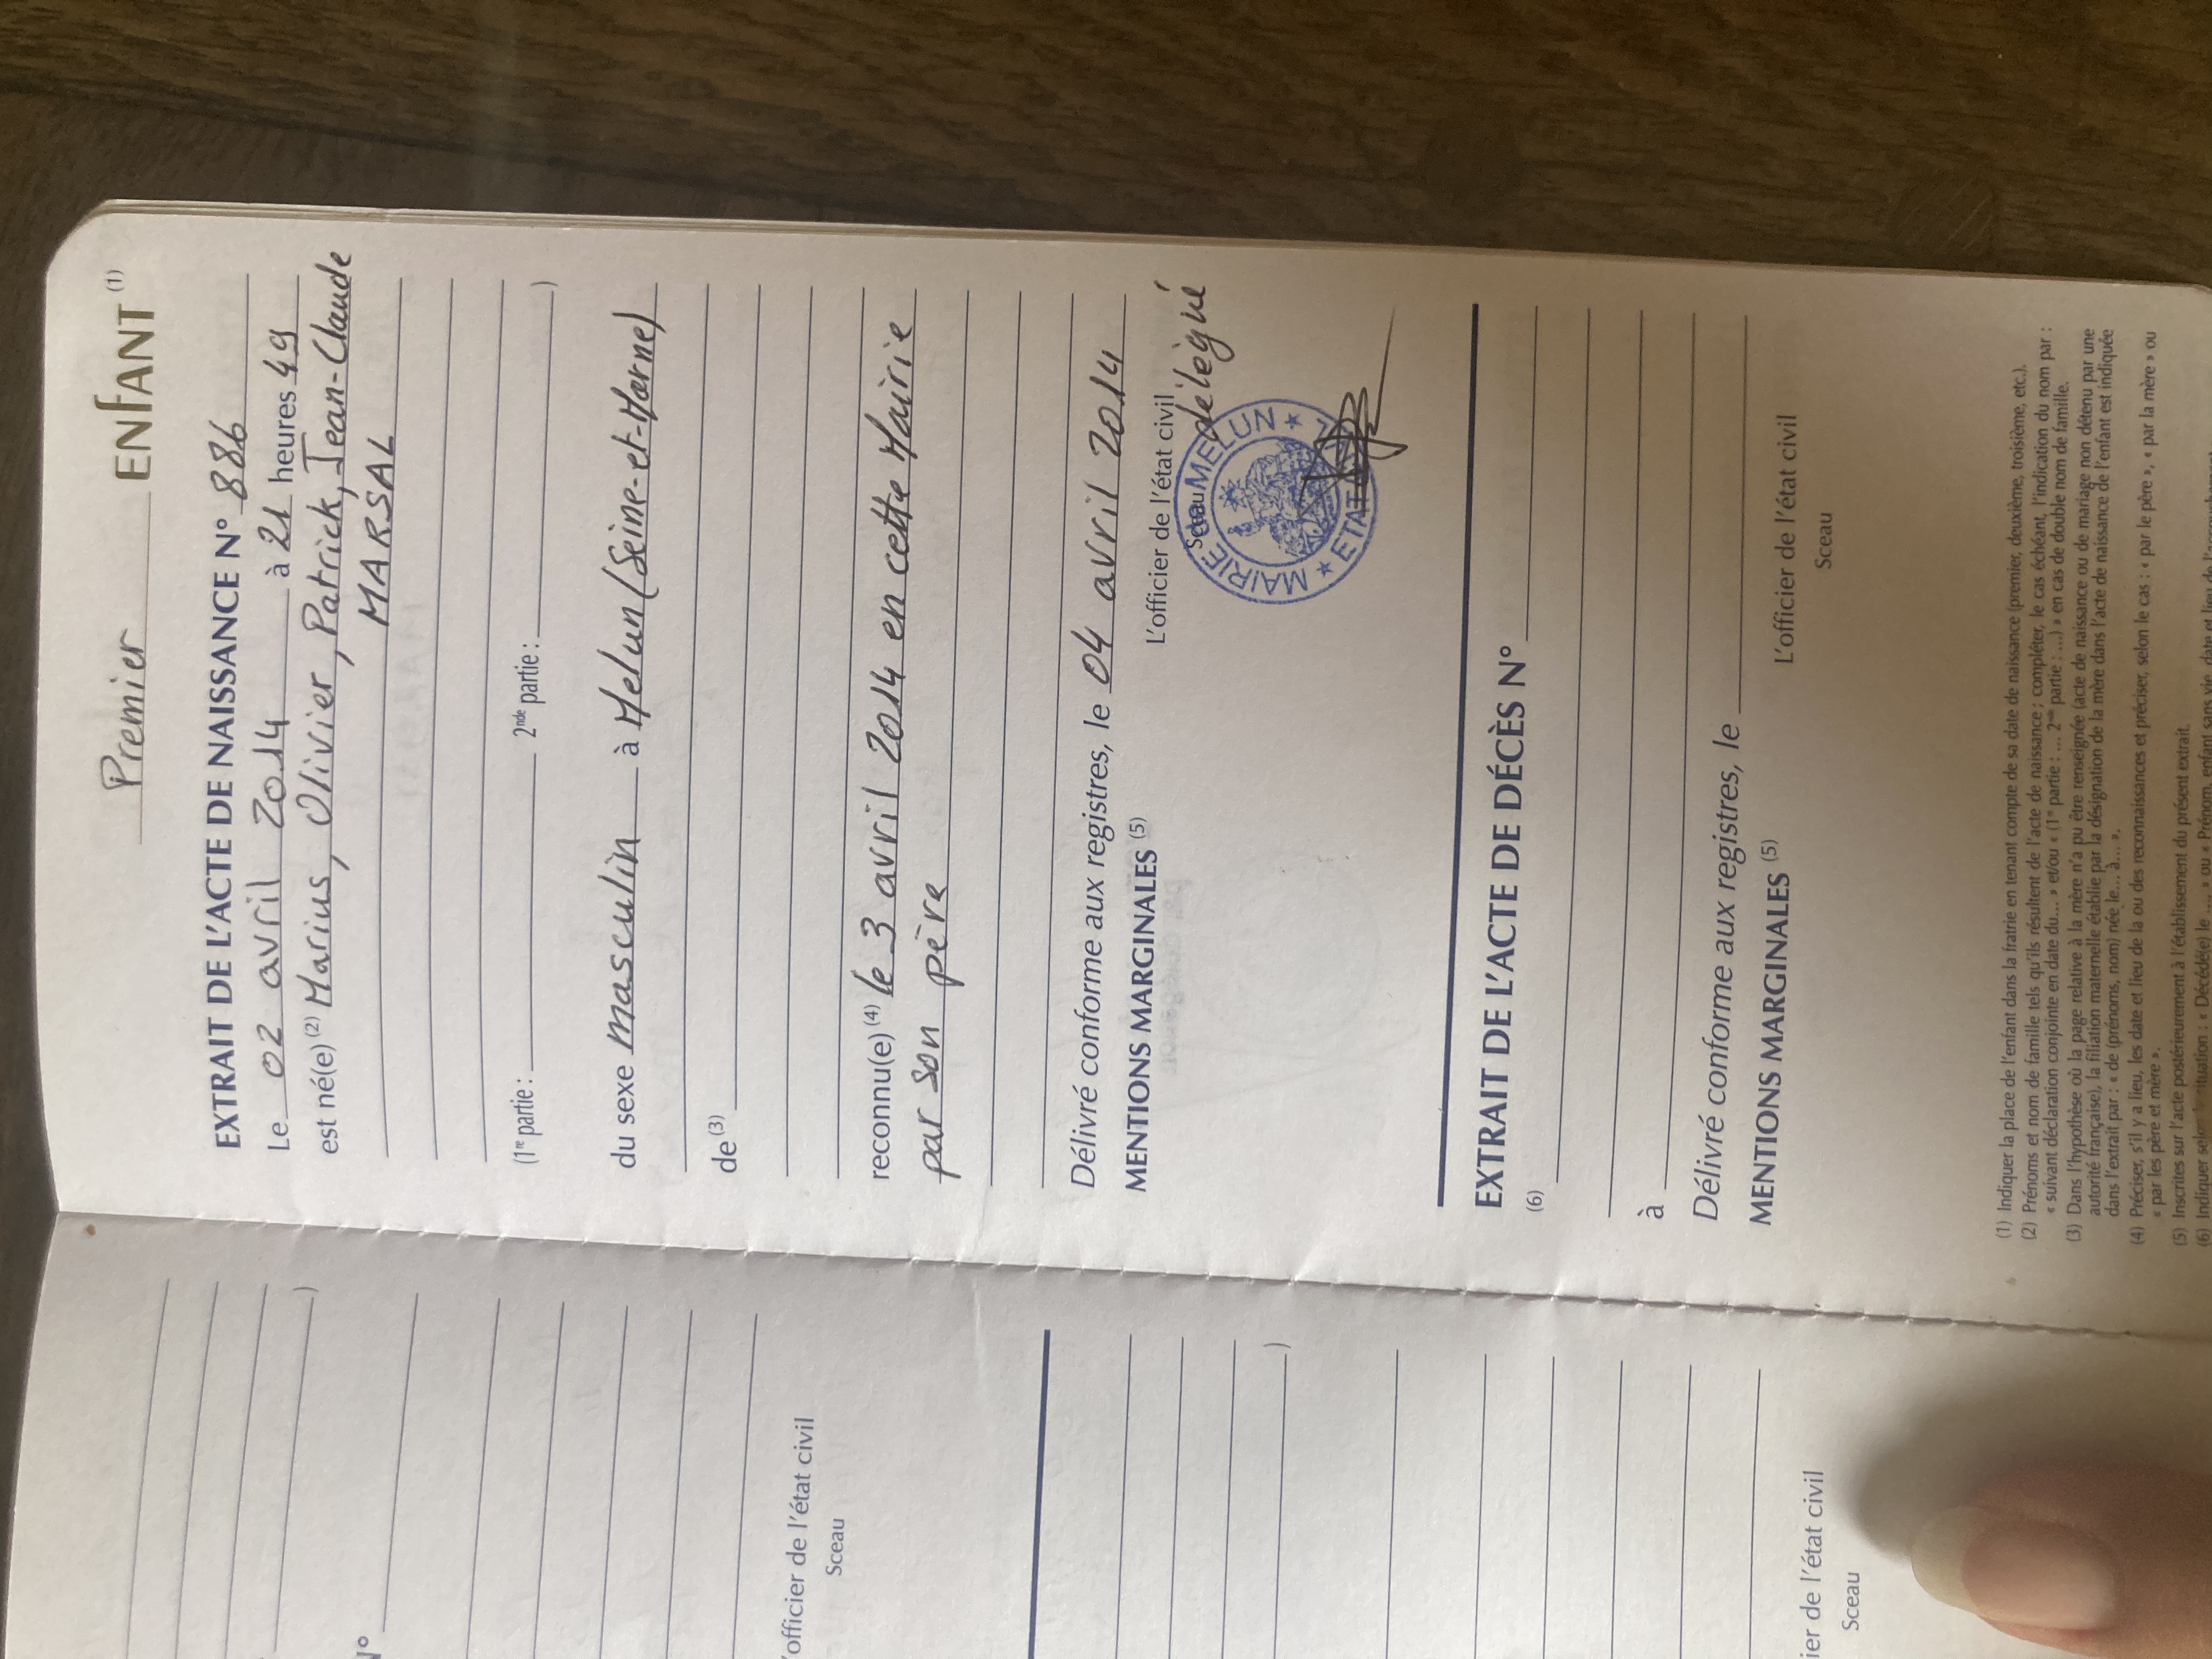 Premier ENFANT (1)
EXTRAIT DE L'ACTE DE NAISSANCE N° 886
Le 02 avril 2014 à 21 heures 49
est né(e) (2) Marius, Olivier, Patrick, Jean-Claude
MARSAL
(1re partie : 2nde partie : )
du sexe masculin à Melun (Seine-et-Marne)
de (3)
reconnu(e) (4) le 3 avril 2014 en cette Mairie
par son père
Délivré conforme aux registres, le 04 avril 2014
MENTIONS MARGINALES (5)
L'officier de l'état civil
délégué
Sceau
MAIRIE de MELUN
ETAT
EXTRAIT DE L'ACTE DE DÉCÈS N°
(6)
à
Délivré conforme aux registres, le
MENTIONS MARGINALES (5)
L'officier de l'état civil
Sceau
(1) Indiquer la place de l'enfant dans la fratrie en tenant compte de sa date de naissance (premier, deuxième, troisième, etc.).
(2) Prénoms et nom de famille tels qu'ils résultent de l'acte de naissance ; compléter, le cas échéant, l'indication du nom par :
« suivant déclaration conjointe en date du... » et/ou « (1re partie : ... 2nde partie : ...) » en cas de double nom de famille.
(3) Dans l'hypothèse où la page relative à la mère n'a pu être renseignée (acte de naissance ou de mariage non détenu par une
autorité française), la filiation maternelle établie par la désignation de la mère dans l'acte de naissance de l'enfant est indiquée
dans l'extrait par : « de (prénoms, nom) née le... à... ».
(4) Préciser, s'il y a lieu, les date et lieu de la ou des reconnaissances et préciser, selon le cas : « par le père », « par la mère » ou
« par les père et mère ».
(5) Inscrites sur l'acte postérieurement à l'établissement du présent extrait.
(6) Indiquer selon la situation : « Décédé(e) le ... » ou « Prénom, enfant sans vie, date et lieu de l'accouchement
)
N°
l'officier de l'état civil
Sceau
)
ier de l'état civil
Sceau